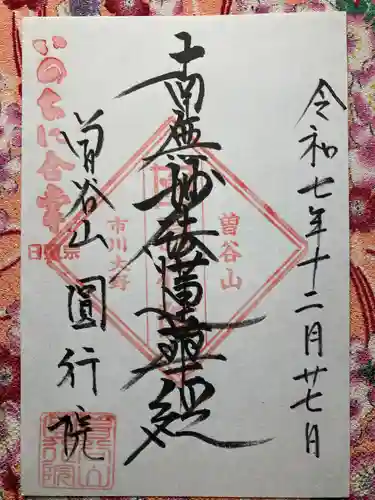 令和七年十二月廿七日
南無妙法蓮華経
曽谷山
市川大野
曽谷山 圓行院
いのちに合掌
日蓮宗